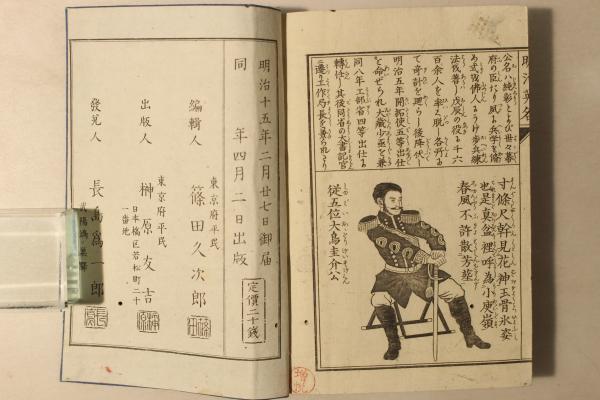 明治英名
公名ハ純彰とよび世々幕
府の臣たり夙に兵学を脩
め武伎佛人にうけ歩兵練
法伎善し戊辰の役に千六
百余人を率ひ脱し各所に
て奇計を廻らし後降伏し
明治五年開拓使五等出仕
を命ぜられ大蔵少丞を兼
同八年工部省四等出仕に
轉任し其後同省の大書記官
に遷り工作局長を兼らるゝ
寸條尺幹見花神玉骨氷姿
也是真盆裡呼為小庾嶺
春風不許散芳塵
従五位大鳥圭介公
明治十五年二月廿七日御届
同 年四月二日出版
定價二十錢
編輯人
東京府平民
篠田久次郎
出版人
東京府平民
日本橋区若松町二十
一番地
榊原友吉
發兌人
長島為一郎